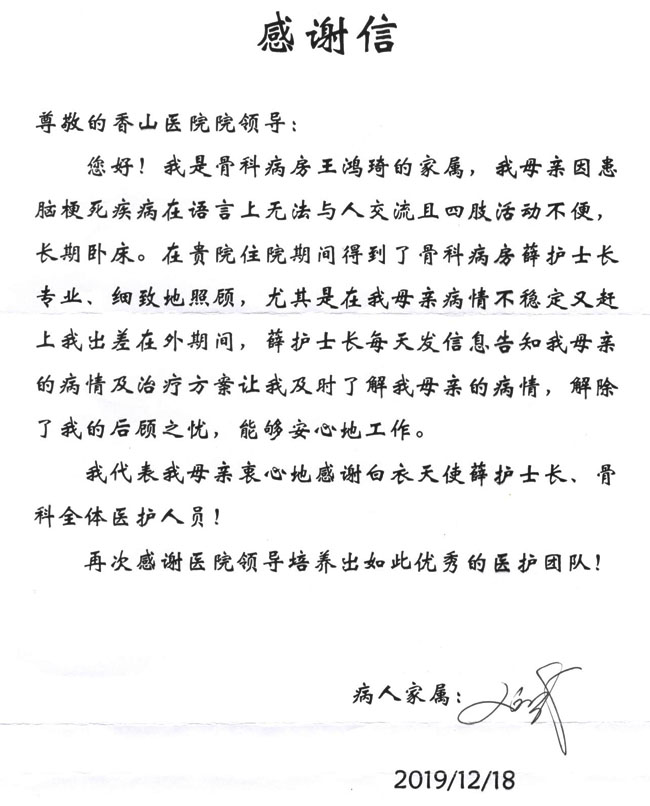 感谢信
尊敬的香山医院院领导：
您好！我是骨科病房王鸿琦的家属，我母亲因患
脑梗死疾病在语言上无法与人交流且四肢活动不便，
长期卧床。在贵院住院期间得到了骨科病房薛护士长
专业、细致地照顾，尤其是在我母亲病情不稳定又赶
上我出差在外期间，薛护士长每天发信息告知我母亲
的病情及治疗方案让我及时了解我母亲的病情，解除
了我的后顾之忧，能够安心地工作。
我代表我母亲衷心地感谢白衣天使薛护士长、骨
科全体医护人员！
再次感谢医院领导培养出如此优秀的医护团队！
病人家属：
2019/12/18